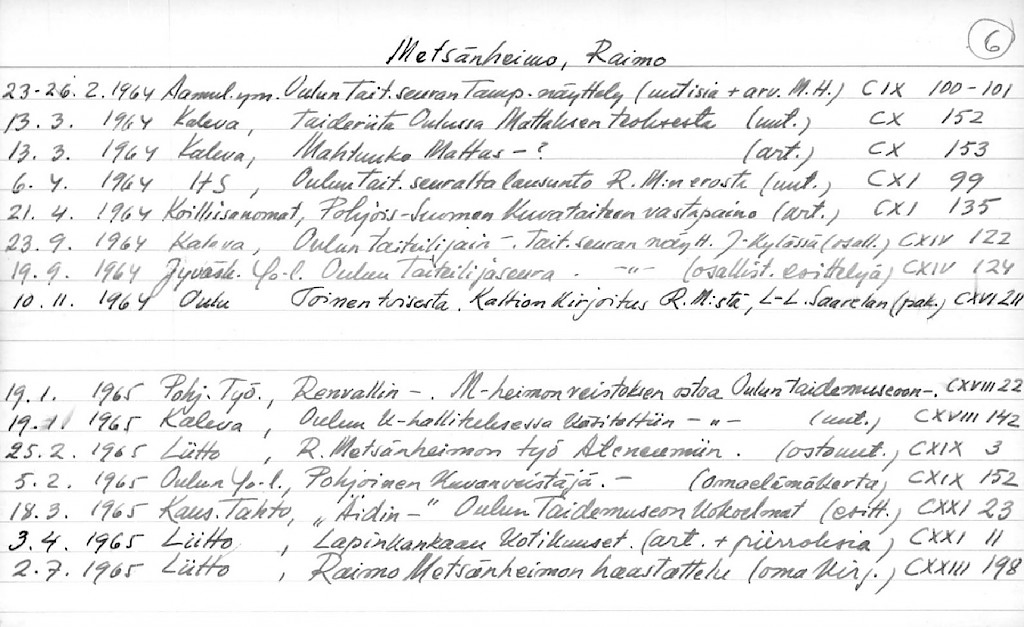 6
Metsänheimo, Raimo
23-26. 2. 1964 Aamul. ym. Oulun Tait. seuran Tamp. näyttely (uutisia + arv. M.H.) CIX 100-101
13. 3. 1964 Kaleva, Taideriita Oulussa Mattuksen teoksesta (uut.) CX 152
13. 3. 1964 Kaleva, Mahtuuko Mattus - ? (art.) CX 153
6. 4. 1964 HS, Oulun Tait. seuralta lausunto R. M:n erosta (uut.) CXI 99
21. 4. 1964 Koillissanomat, Pohjois-Suomen Kuvataiteen vastapaino (art.) CXI 135
23. 9. 1964 Kaleva, Oulun taiteilijain -. Tait. seuran näytt. J-Kylässä (osall.) CXIV 122
19. 9. 1964 Jyväsk. Yo-l. Oulun Taiteilijaseura. -"- (osallist. esittelyä) CXIV 124
10. 11. 1964 Oulu Toinen toisesta. Kaltion Kirjoitus R. M:stä, L-L. Saarelan (pak.) CXVI 211
19. 1. 1965 Pohj. Työ., Renvallin -. M-heimon veistoksen ostaa Oulun taidemuseoon -. CXVIII 22
19. 1965 Kaleva, Oulun K-hallituksessa Käsiteltiin - " - (uut.) CXVIII 142
25. 2. 1965 Liitto, R. Metsänheimon työ Ateneumiin. (ostouut.) CXIX 3
5. 2. 1965 Oulun Yo-l., Pohjoinen Kuvanveistäjä. - (omaelämäkerta) CXIX 152
18. 3. 1965 Kans. Tahto, "Äidin -" Oulun Taidemuseon Kokoelmat (esitt.) CXXI 23
3. 4. 1965 Liitto, Lapinkankaan Kotikuuset. (art. + piirroksia) CXXI 11
2. 7. 1965 Liitto, Raimo Metsänheimon haastattelu (oma Kirj.) CXXIII 198